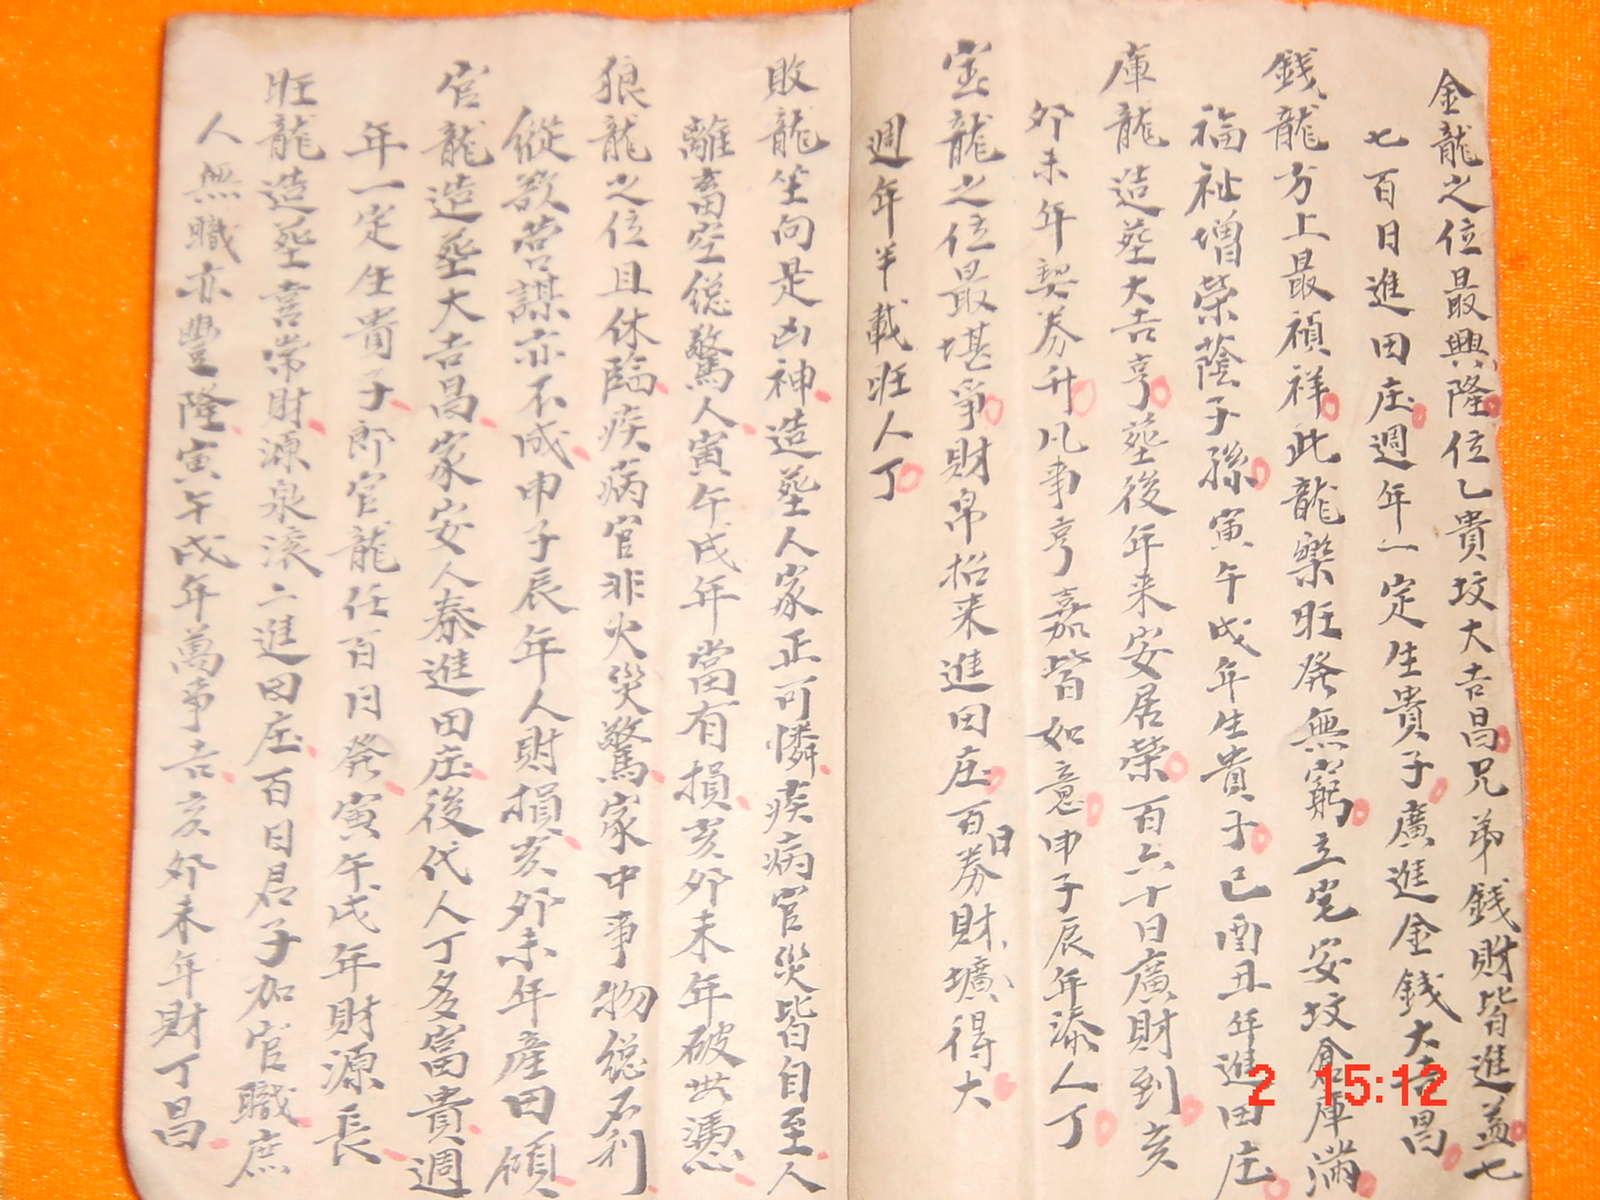 金龍之位最興隆位乙貴坟大吉昌兄弟錢財皆進益七
七百日進田庄週年一定生貴子廣進金錢大吉昌
錢龍方上最禎祥此龍樂旺発無窮立宅安坟倉庫滿
福祉增榮蔭子孫寅午戌年生貴子巳酉丑年進田庄
庫龍造塟大吉亨塟後年来安居榮百六十日廣財到亥
夘未年契券升凡事亨嘉皆如意申子辰年添人丁
宝龍之位最堪爭財帛招来進田庄百日券財壙得大
週年半載旺人丁
敗龍坐向是凶神造塟人家正可憐疾病官災皆自至人
離畜空総驚人寅午戌年當有損亥夘未年破世憑
狼龍之位且休臨疾病官非火災驚家中事物総不利
縱欲营謀亦不成申子辰年人財損亥夘未年産田傾
官龍造塟大吉昌家安人泰進田庄後代人丁多富貴週
年一定生貴子郎官龍任百日発寅午戌年財源長
旺龍造塟喜常財源泉滚二進田庄百日君子加官職庶
人無職亦豐隆寅午戌年萬事吉亥夘未年財丁昌
2 15:12